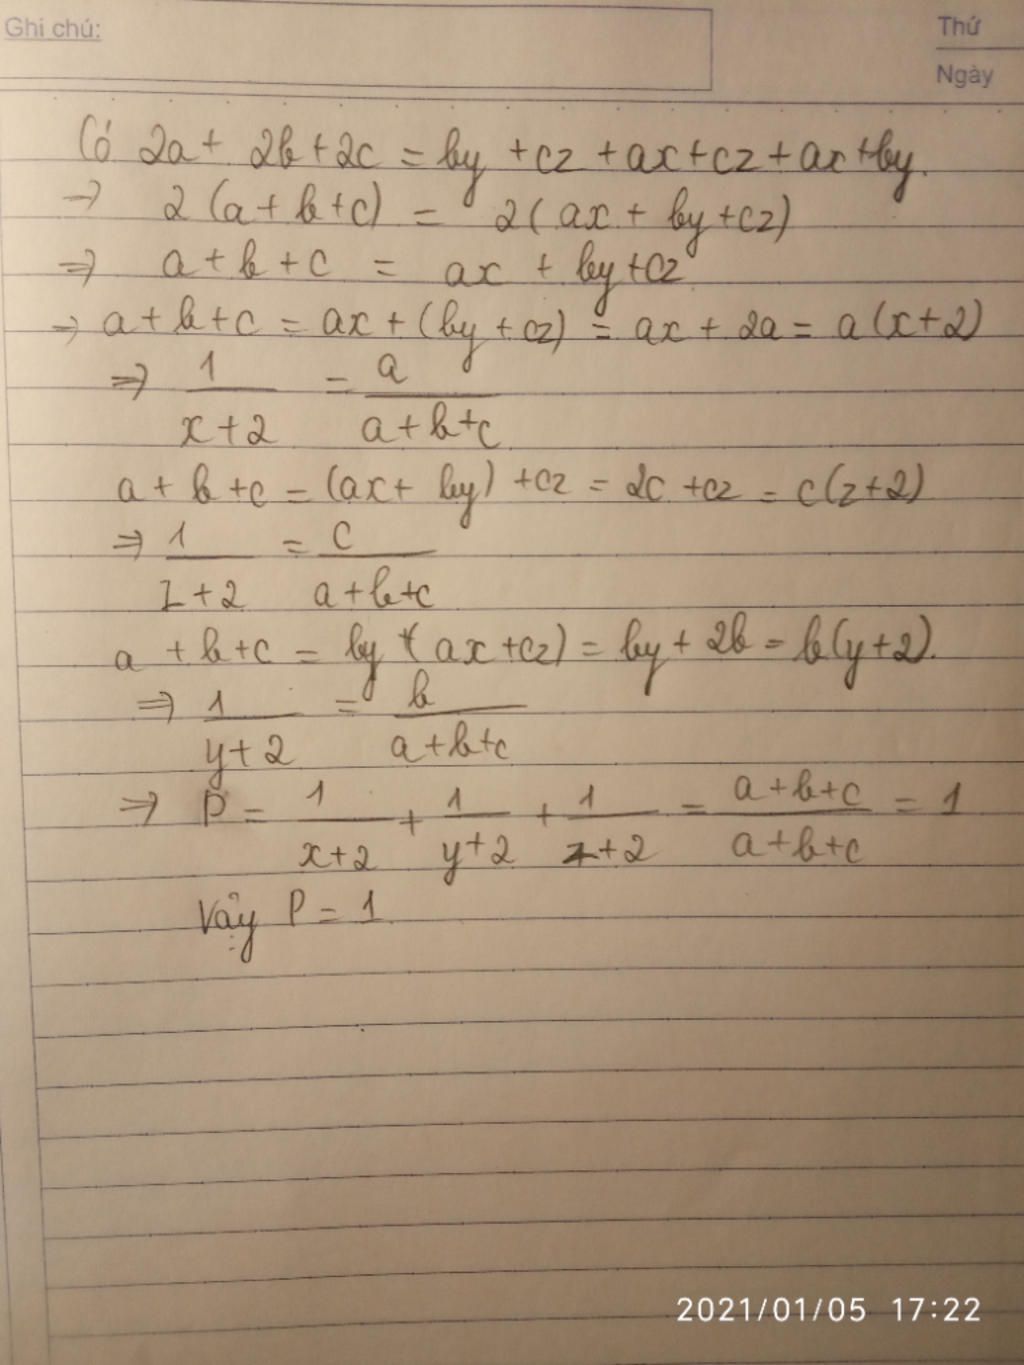 Ghi chú:
Thứ
Ngày
Có 2a + 2b + 2c = by + cz + ax + cz + ax + by.
=> 2 (a + b + c) = 2 (ax + by + cz)
=> a + b + c = ax + by + cz
=> a + b + c = ax + (by + cz) = ax + 2a = a (x + 2)
=> 1/(x + 2) = a/(a + b + c)
a + b + c = (ax + by) + cz = 2c + cz = c (z + 2)
=> 1/(z + 2) = c/(a + b + c)
a + b + c = by + (ax + cz) = by + 2b = b (y + 2).
=> 1/(y + 2) = b/(a + b + c)
=> P = 1/(x + 2) + 1/(y + 2) + 1/(z + 2) = (a + b + c)/(a + b + c) = 1
Vậy P = 1
2021/01/05 17:22